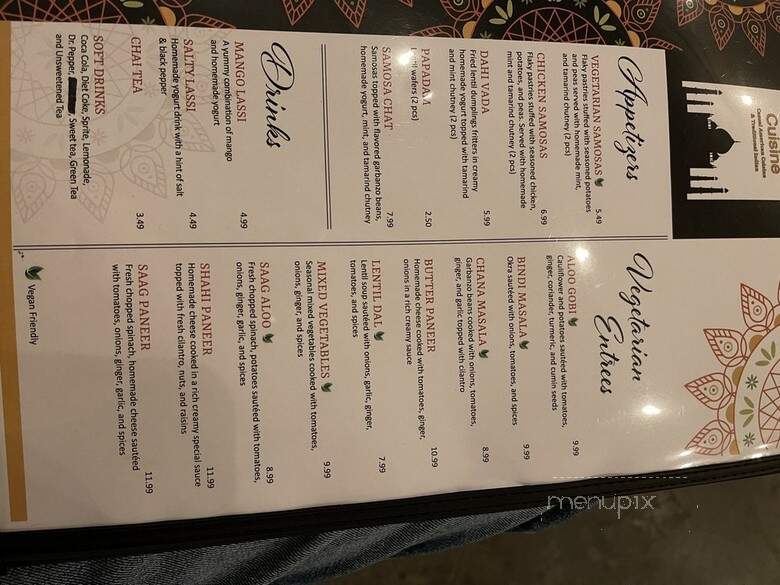 Cuisine
Casual American Cuisine
& Traditional Indian
Appetizers
VEGETARIAN SAMOSAS 5.49
Flaky pastries stuffed with seasoned potatoes
and peas served with homemade mint,
and tamarind chutney (2 pcs)
CHICKEN SAMOSAS 6.99
Flaky pastries stuffed with seasoned chicken,
potatoes, and peas. Served with homemade
mint and tamarind chutney (2 pcs)
DAHI VADA 5.99
Fried lentil dumplings fritters in creamy
homemade yogurt topped with tamarind
and mint chutney (2 pcs)
PAPADAM 2.50
Lentil wafers (2 pcs)
SAMOSA CHAT 7.99
Samosas topped with flavored garbanzo beans,
homemade yogurt, mint, and tamarind chutney
Drinks
MANGO LASSI 4.99
A yummy combination of mango
and homemade yogurt
SALTY LASSI 4.49
Homemade yogurt drink with a hint of salt
& black pepper
CHAI TEA 3.49
SOFT DRINKS
Coca Cola, Diet Coke, Sprite, Lemonade,
Dr. Pepper, Sweet tea, Green Tea
and Unsweetened Tea
Vegetarian
Entrees
ALOO GOBI 9.99
Cauliflower and potatoes sautéed with tomatoes,
ginger, coriander, turmeric, and cumin seeds
BINDI MASALA 9.99
Okra sautéed with onions, tomatoes, and spices
CHANA MASALA 8.99
Garbanzo beans cooked with onions, tomatoes,
ginger, and garlic topped with cilantro
BUTTER PANEER 10.99
Homemade cheese cooked with tomatoes, ginger,
onions in a rich creamy sauce
LENTIL DAL 7.99
Lentil soup sautéed with onions, garlic, ginger,
tomatoes, and spices
MIXED VEGETABLES 9.99
Seasonal mixed vegetables cooked with tomatoes,
onions, ginger, and spices
SAAG ALOO 8.99
Fresh chopped spinach, potatoes sautéed with tomatoes,
onions, ginger, garlic, and spices
SHAHI PANEER 11.99
Homemade cheese cooked in a rich creamy special sauce
topped with fresh cilantro, nuts, and raisins
SAAG PANEER 11.99
Fresh chopped spinach, homemade cheese sautéed
with tomatoes, onions, ginger, garlic, and spices
Vegan Friendly
menupix